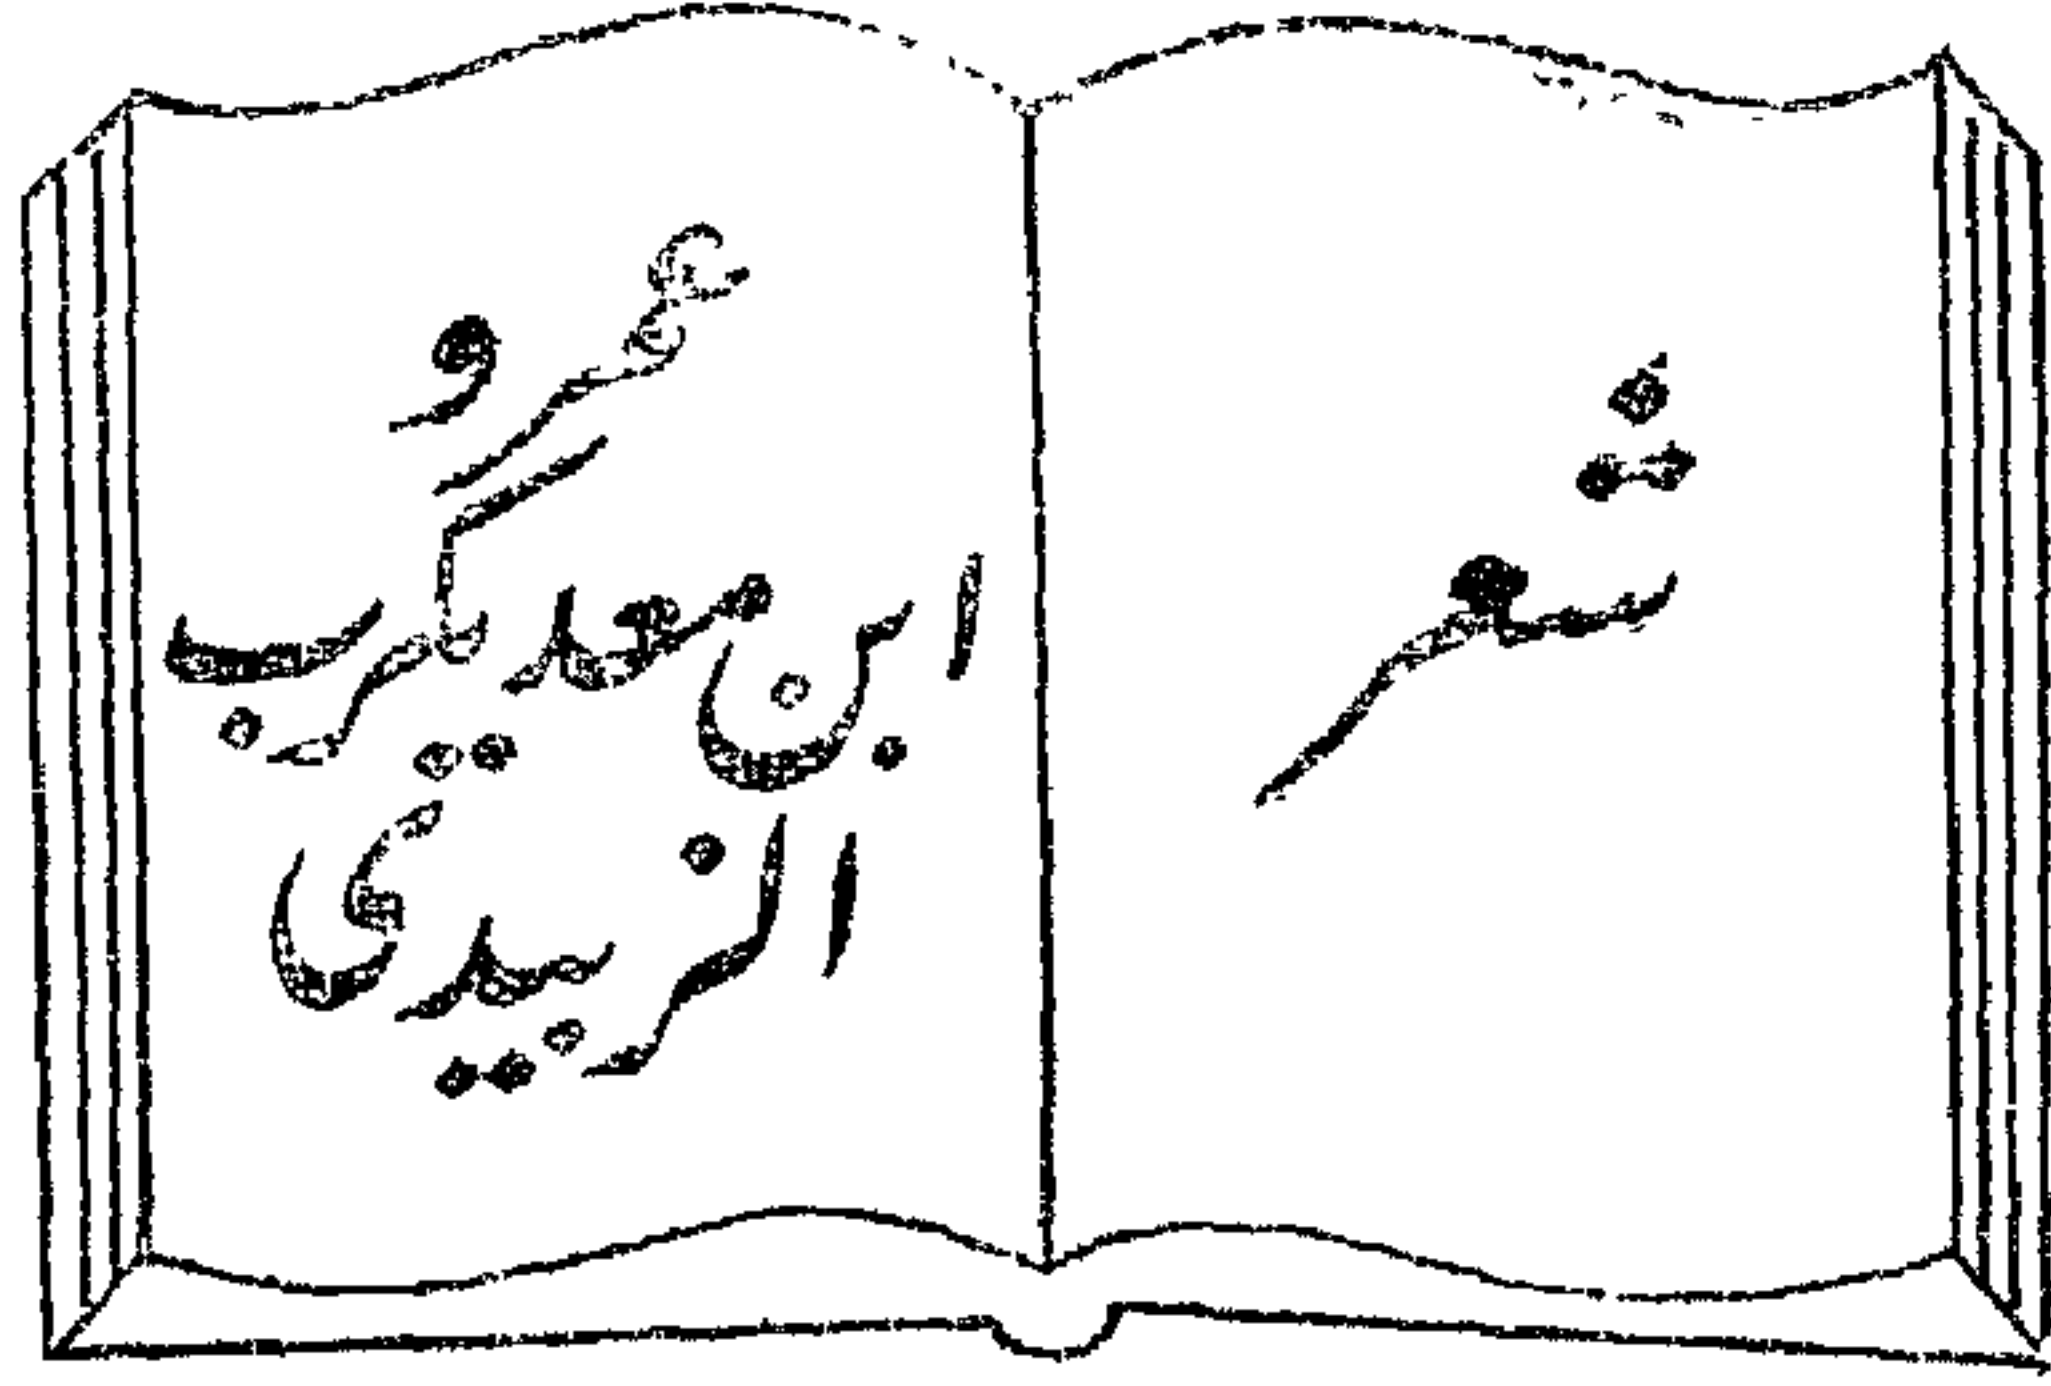 شعر
عمرو
ابن معديكرب
الزبيدي